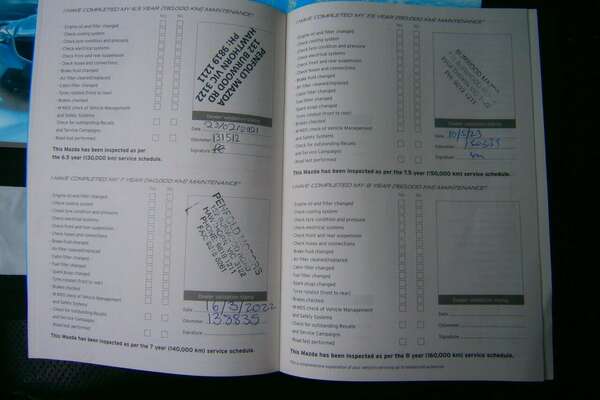 I HAVE COMPLETED MY 6.5 YEAR (130,000 KM) MAINTENANCE*
Engine oil and filter changed
- Check cooling system
- Check tyre condition and pressure
- Check electrical systems
- Check front and rear suspension
- Check hoses and connections
- Brake fluid changed
- Air filter cleaned/replaced
- Cabin filter changed
- Tyres rotated (front to rear)
- Brakes checked
- M-MDS check of Vehicle Management
and Safety Systems
- Check for outstanding Recalls
and Service Campaigns
- Road test performed
Yes No
PENFOLD MAZDA
133 BURWOOD RD
HAWTHORN VIC 3122
PH: 9819 1211
Dealer validation stamp
Date
Odometer 131512
Signature
This Mazda has been inspected as per
the 6.5 year (130,000 km) service schedule.
I HAVE COMPLETED MY 7 YEAR (140,000 KM) MAINTENANCE*
Engine oil and filter changed
- Check cooling system
- Check tyre condition and pressure
- Check electrical systems
- Check front and rear suspension
- Check hoses and connections
- Brake fluid changed
- Air filter cleaned/replaced
- Cabin filter changed
- Fuel filter changed
- Spark plugs changed
- Tyres rotated (front to rear)
- Brakes checked
- M-MDS check of Vehicle Management
and Safety Systems
- Check for outstanding Recalls
and Service Campaigns
- Road test performed
Yes No
PENFOLD MOTORS
Dealer validation stamp
Date 16/3/2022
Odometer 133835
Signature
This Mazda has been inspected as per the 7 year (140,000 km) service schedule.
I HAVE COMPLETED MY 7.5 YEAR (150,000 KM) MAINTENANCE*
Engine oil and filter changed
- Check cooling system
- Check tyre condition and pressure
- Check electrical systems
- Check front and rear suspension
- Check hoses and connections
- Brake fluid changed
- Air filter cleaned/replaced
- Cabin filter changed
- Fuel filter changed
- Spark plugs changed
- Tyres rotated (front to rear)
- Brakes checked
- M-MDS check of Vehicle Management
and Safety Systems
- Check for outstanding Recalls
and Service Campaigns
- Road test performed
Yes No
Dealer validation stamp
Date 10/5/23
Odometer
Signature
This Mazda has been inspected as per the 7.5 year (150,000 km) service schedule.
I HAVE COMPLETED MY 8 YEAR (160,000 KM) MAINTENANCE*
Engine oil and filter changed
- Check cooling system
- Check tyre condition and pressure
- Check electrical systems
- Check front and rear suspension
- Check hoses and connections
- Brake fluid changed
- Air filter cleaned/replaced
- Cabin filter changed
- Fuel filter changed
- Spark plugs changed
- Tyres rotated (front to rear)
- Brakes checked
- M-MDS check of Vehicle Management
and Safety Systems
- Check for outstanding Recalls
and Service Campaigns
- Road test performed
Yes No
Dealer validation stamp
Date
Odometer
Signature
This Mazda has been inspected as per the 8 year (160,000 km) service schedule.